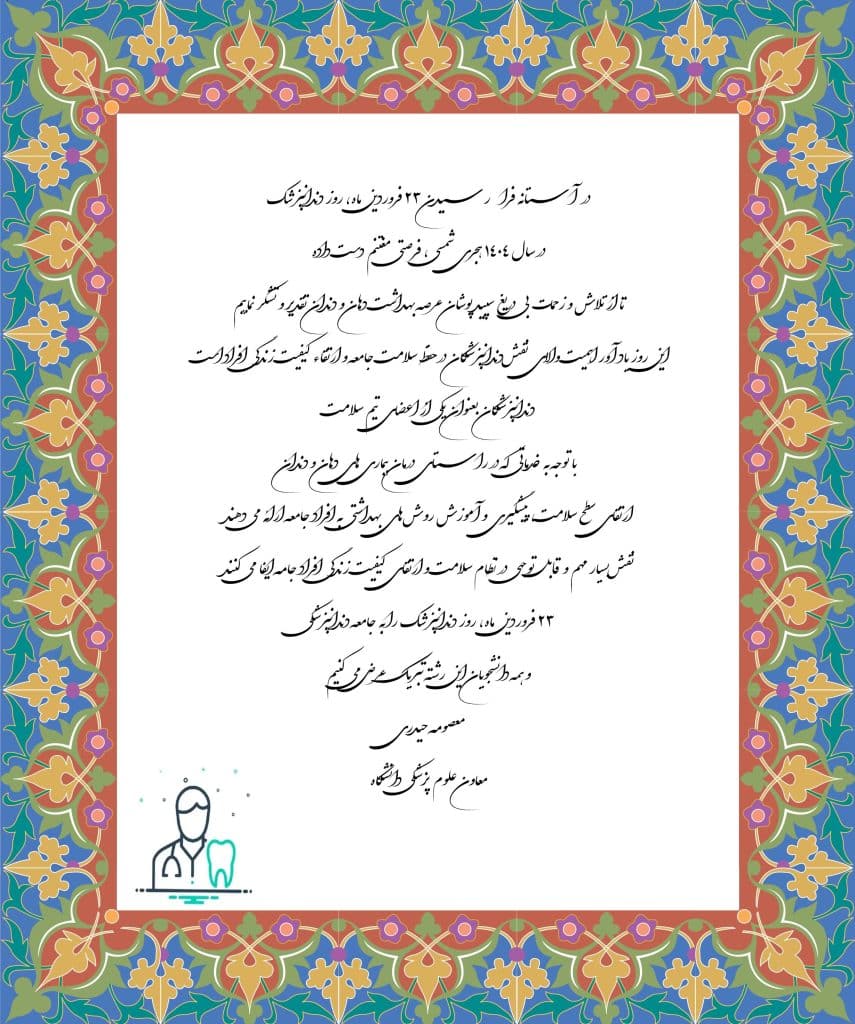 در آستانه فرا رسیدن ۲۳ فروردین ماه، روز دندانپزشک
در سال ۱۴۰۴ هجری شمسی ، فرصتی مغتنم دست داده
تا از تلاش و زحمت بی دریغ سپیدپوشان عرصه بهداشت دهان و دندان تقدیر و تشکر نماییم
این روز یادآور اهمیت والای نقش دندانپزشکان در حفظ سلامت جامعه و ارتقاء کیفیت زندگی افراد است
دندانپزشکان بعنوان یکی از اعضای تیم سلامت
با توجه به خدماتی که در راستای درمان بیماری های دهان و دندان
ارتقای سطح سلامت، پیشگیری و آموزش روش های بهداشتی به افراد جامعه ارائه می دهند
نقش بسیار مهم و قابل توجهی در نظام سلامت و ارتقای کیفیت زندگی افراد جامه ایفا می کنند
۲۳ فروردین ماه، روز دندانپزشک را به جامعه دندانپزشکی
و همه دانشجویان این رشته تبریک عرض می کنیم
معصومه حیدری
معاون علوم پزشکی دانشگاه